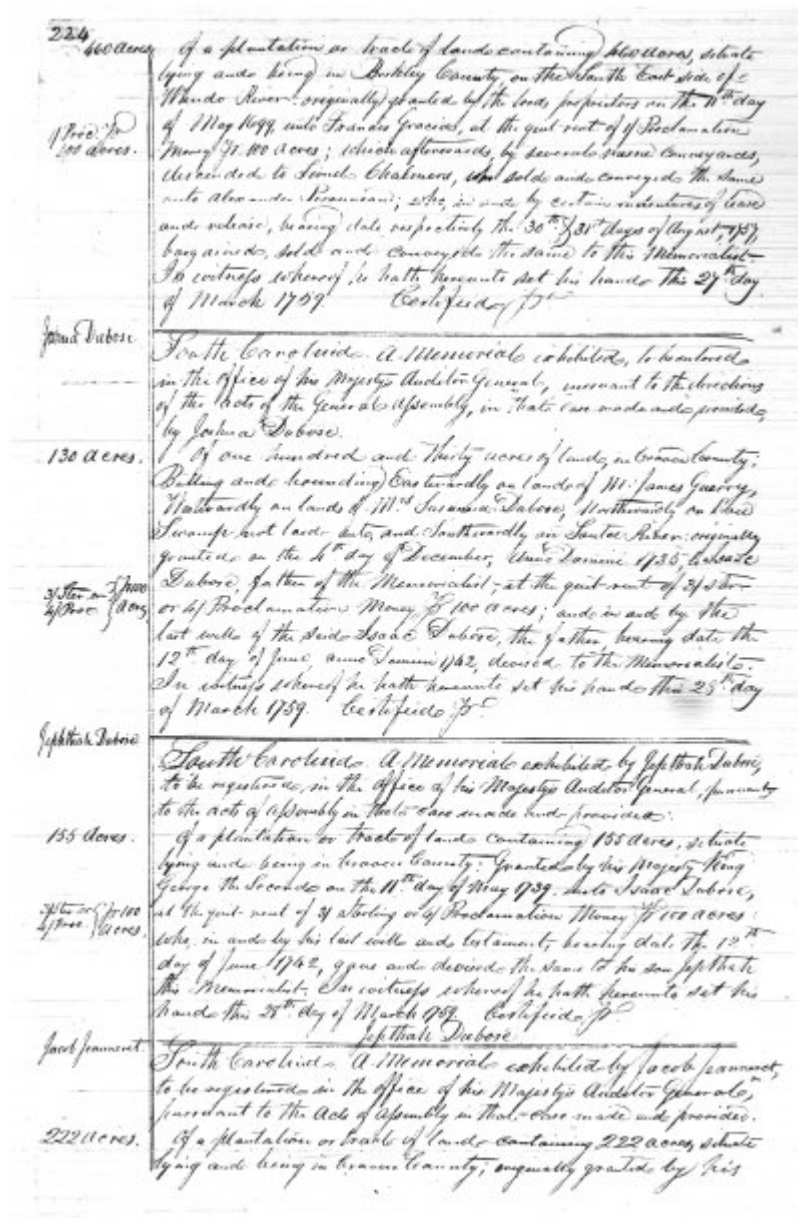 224
460 Acres
Of a plantation or tract of land containing 460 acres, situate
lying and being in Berkley County on the South East side of
Wando River originally granted by the lords proprietors on the 11th day
1/ Proc. Pr
100 acres.
of May 1699 unto Francis Gracia, at the quit rent of 1/ Proclamation
Money Pr. 100 acres; which afterwards, by several mesne conveyances,
descended to Lionel Chalmers, who sold and conveyed the same
unto Alexander Peronneau; who, in and by certain indentures of lease
and release, bearing date respectively the 30th & 31st days of August, 1757,
bargained, sold and conveyed the same to this Memorialist.
In witness whereof, he hath hereunto set his hand this 27th day
of March 1759. Certified Pr
Joshua Dubose
South Carolina. A Memorial exhibited, to be entered
in the office of his Majestys Auditor General, pursuant to the directions
of the acts of the General Assembly, in that case made and provided,
by Joshua Dubose.
130 acres.
Of one hundred and thirty acres of land, in Craven County;
Butting and bounding Eastwardly on lands of Mr. James Guerry,
Westwardly on lands of Mrs Susanna Dubose, Northwardly on
Swamp not laid out, and Southwardly on Santee River: originally
granted on the 4th day of December, Anno Domini 1735, to Isaac
3/ Ster or
4/ Proc
Pr 100
Acres
Dubose, father of the Memorialist, at the quit rent of 3/ ster
or 4/ Proclamation Money Pr 100 acres; and in and by the
last will of the said Isaac Dubose, the father bearing date the
12th day of June, anno Domini 1742, devised to the Memorialist.
In witness whereof he hath hereunto set his hand this 28th day
of March 1759. Certifeid Pr
Jephthah Dubose
South Carolina. A Memorial exhibited by Jepthah Dubose,
to be registered, in the office of his Majestys Auditor General, pursuant
to the acts of assembly in that case made and provided:
155 Acres.
Of a plantation or tract of land containing 155 Acres, situate
lying and being in Craven County: Granted by his Majesty King
George the Second on the 11th day of May 1739 unto Isaac Dubose,
3/ Ster or
4/ Proc.
Pr 100
acres.
at the quit rent of 3/ Sterling or 4/ Proclamation Money Pr 100 acres:
who, in and by his last will and testament, bearing date the 12th
day of June 1742, gave and devised the same to his son Jepthah
this Memorialist. In witness whereof he hath hereunto set his
hand this 28th day of March 1759. Certifeid Pr
Jepthah Dubose
Jacob Jeanneret.
South Carolina. A Memorial exhibited by Jacob Jeanneret,
to be registered in the office of his Majestys Auditor General,
pursuant to the Acts of assembly in that case made and provided.
222 acres.
Of a plantation or tract of land containing 222 acres, situate
lying and being in Craven County; originally granted by his